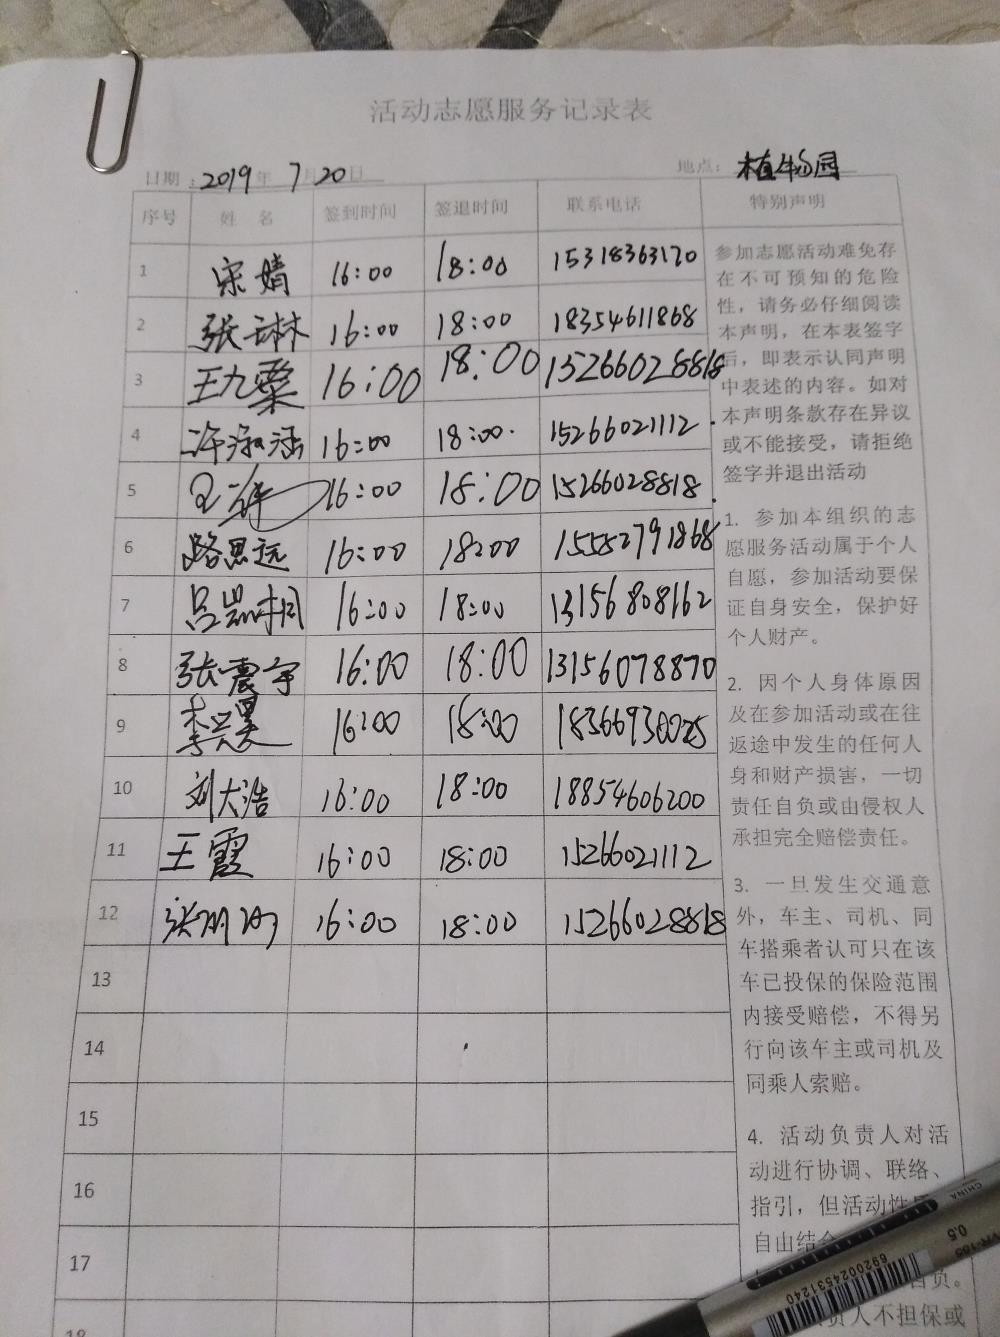 活动志愿服务记录表
日期：2019年 7月20日 地点：植物园
序号 姓 名 签到时间 签退时间 联系电话 特别声明
1 宋婧 16:00 18:00 15318363170
2 张琳 16:00 18:00 18354611868
3 王九粟 16:00 18:00 15266028818
4 许淑涵 16:00 18:00 15266021112
5 16:00 18:00 15266028818
6 路思远 16:00 18:00 15552791868
7 吕凯桐 16:00 18:00 13156808162
8 张震宇 16:00 18:00 13156078870
9 李昊 16:00 18:00 18366930025
10 刘大浩 16:00 18:00 18854606200
11 王霞 16:00 18:00 15266021112
12 16:00 18:00 15266028818
13
14
15
16
17
18
参加志愿活动难免存
在不可预知的危险
性，请务必仔细阅读
本声明，在本表签字
后，即表示认同声明
中表述的内容。如对
本声明条款存在异议
或不能接受，请拒绝
签字并退出活动
1. 参加本组织的志
愿服务活动属于个人
自愿，参加活动要保
证自身安全，保护好
个人财产。
2. 因个人身体原因
及在参加活动或在往
返途中发生的任何人
身和财产损害，一切
责任自负或由侵权人
承担完全赔偿责任。
3. 一旦发生交通意
外，车主、司机、同
车搭乘者认可只在该
车已投保的保险范围
内接受赔偿，不得另
行向该车主或司机及
同乘人索赔。
4. 活动负责人对活
动进行协调、联络、
指引，但活动性
自由结
自负。
责人不担保或
CHINA
0.5
6920024531240